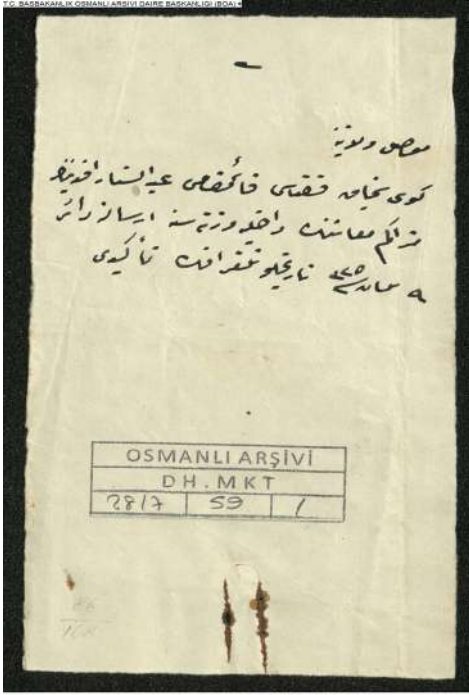 T.C. BAŞBAKANLIK OSMANLI ARŞİVİ DAİRE BAŞKANLIĞI (BOA)
موصل ولايتنه
كوى سنجاق قضاسى قائمقامى عبد الستار افندينك
متراكم معاشنك داخليه ارسالنه دائر
٩ نيسان ٣٢٥ تاريخلو تلغرافك تأكيدى
OSMANLI ARŞİVİ
DH.MKT
2817 59 1